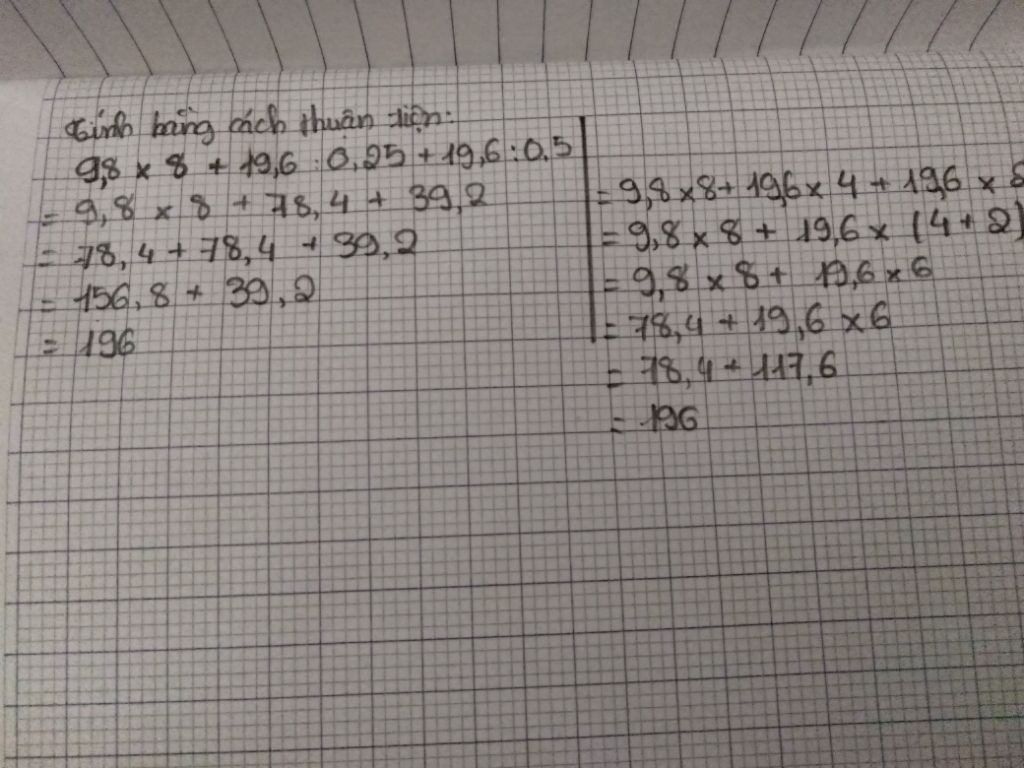 Tính bằng cách thuận tiện:
9,8 x 8 + 19,6 : 0,25 + 19,6 : 0,5
= 9,8 x 8 + 78,4 + 39,2
= 78,4 + 78,4 + 39,2
= 156,8 + 39,2
= 196
= 9,8 x 8 + 19,6 x 4 + 19,6 x
= 9,8 x 8 + 19,6 x (4 + 2)
= 9,8 x 8 + 19,6 x 6
= 78,4 + 19,6 x 6
= 78,4 + 117,6
= 196